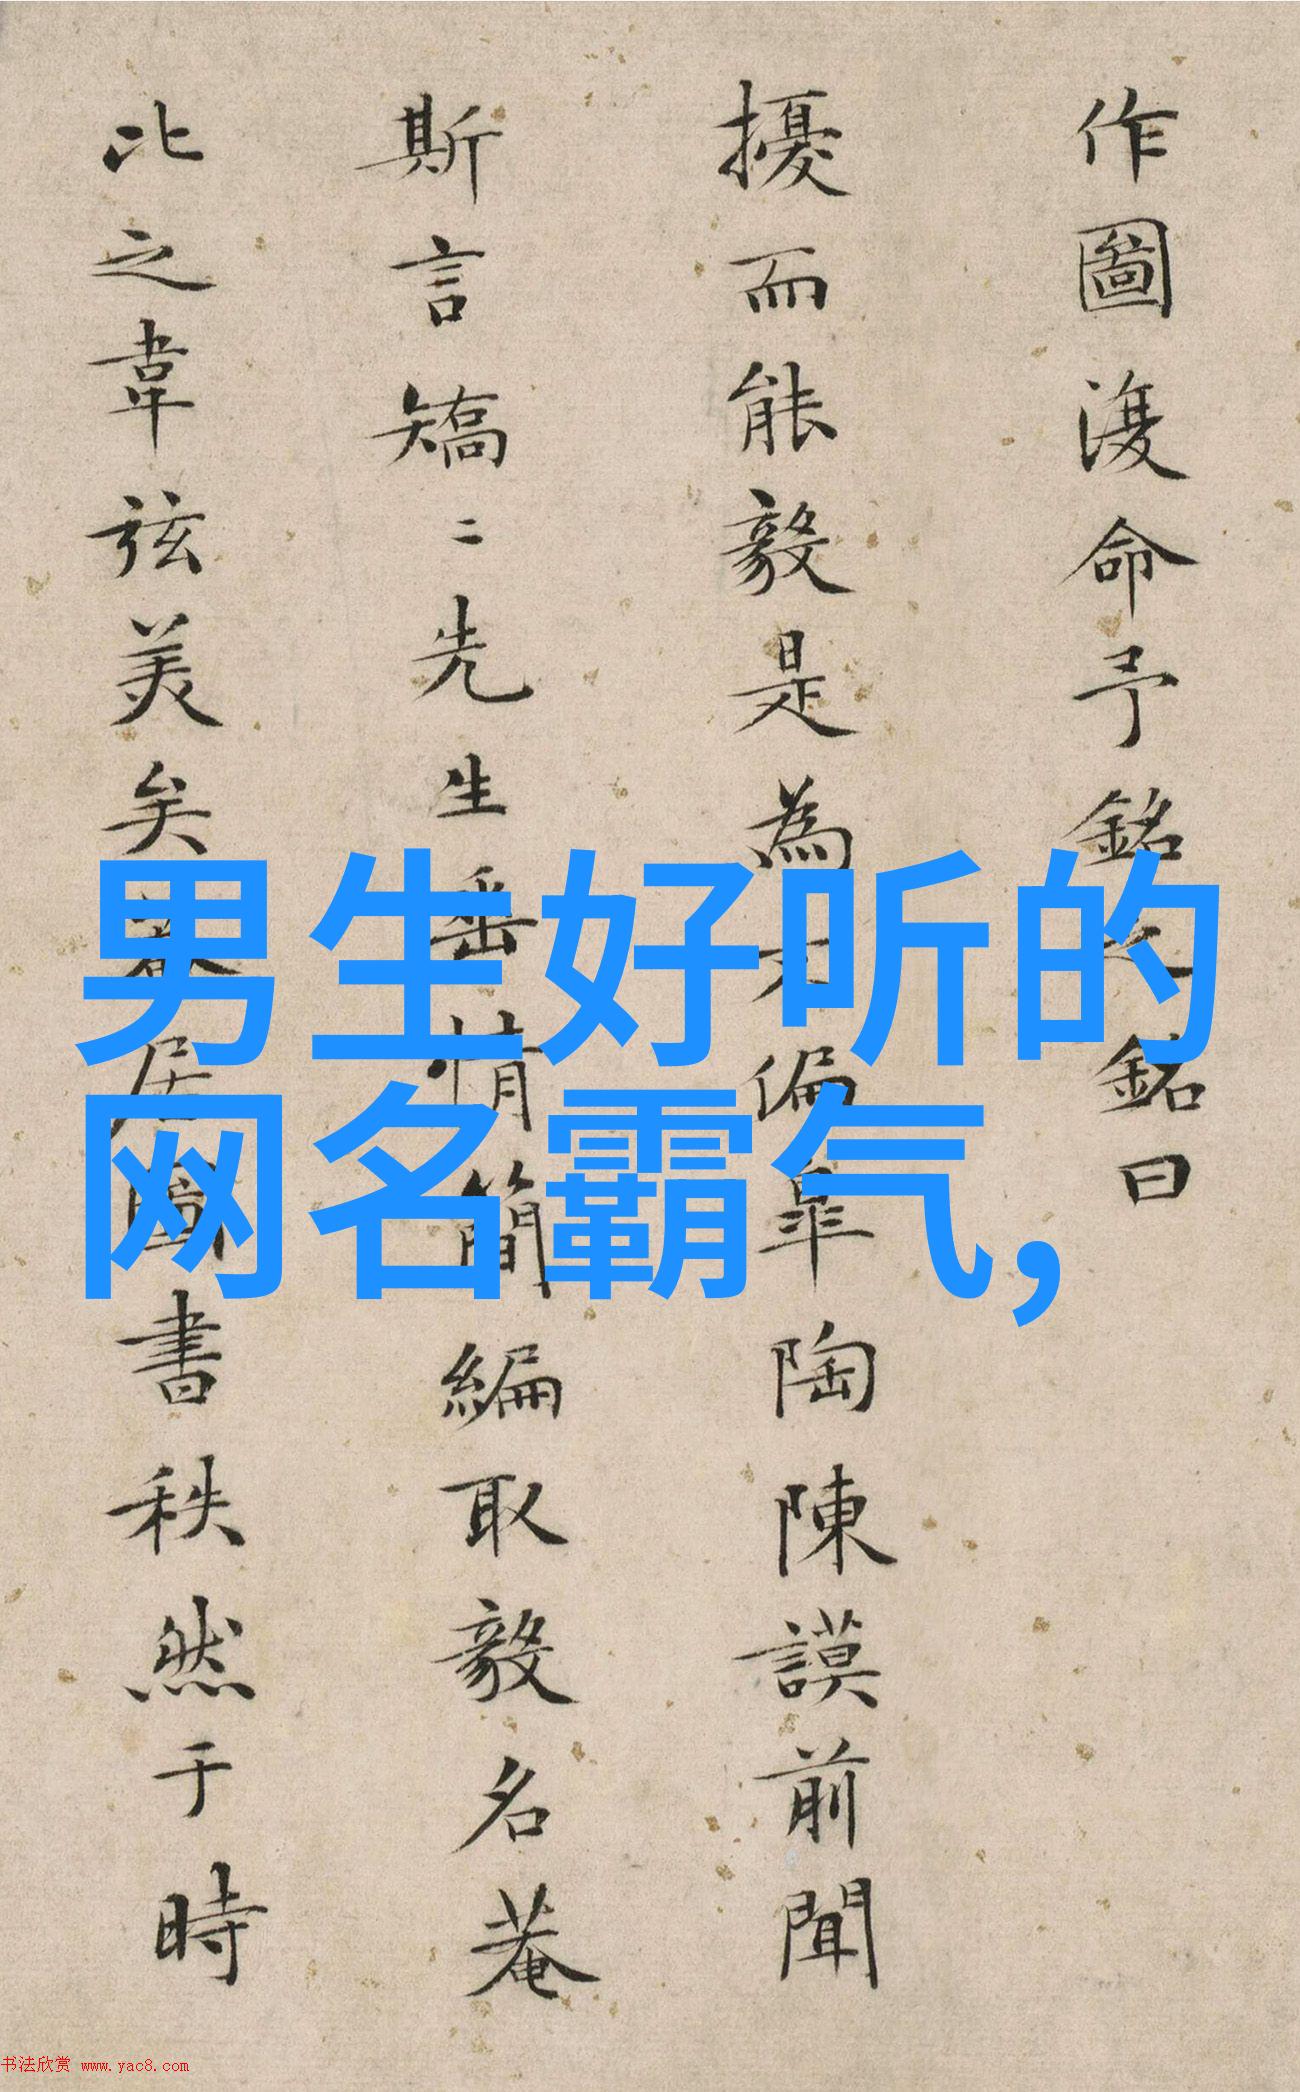 作圖復命予銘之銘曰
擾而能毅是為不偏皋陶陳謨前聞
斯言矯二先生垂情簡編取毅名菴
比之韋弦美矣菴居圖書秩然于時
男生好听的
网名霸气,
书法欣赏 www.yac8.com